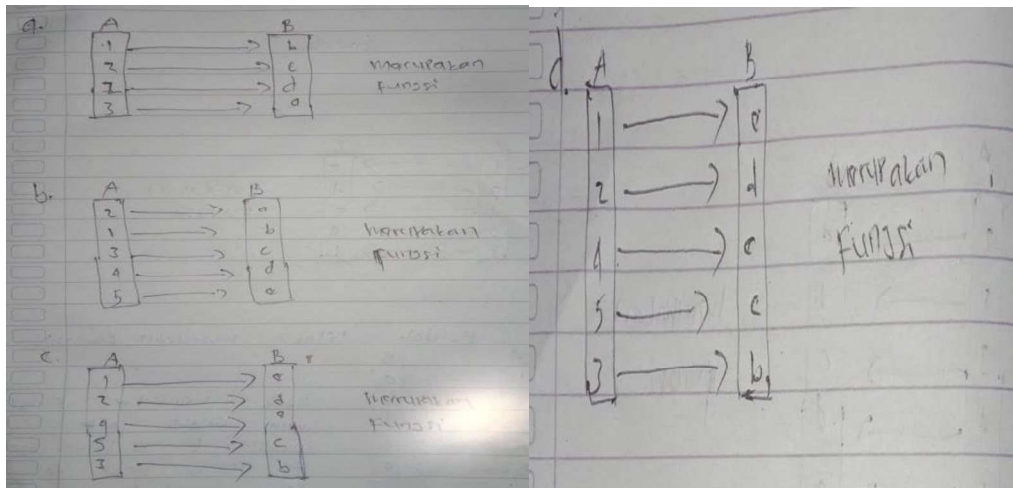 a.
A B
1 b
2 c
2 d
3 a
merupakan
fungsi
b.
A B
2 a
1 b
3 c
4 d
5 e
merupakan
fungsi
c.
A B
1 e
2 d
4 a
5 c
3 b
merupakan
fungsi
d.
A B
1 e
2 d
4 c
5 c
3 b
merupakan
fungsi